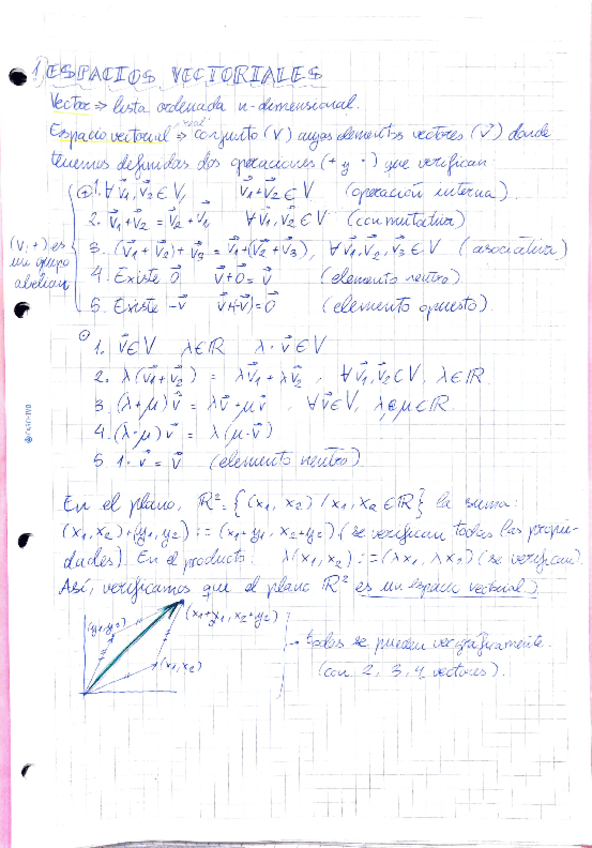 1) ESPACIOS VECTORIALES
Vector ⇒ lista ordenada n-dimensional.
real
Espacio vectorial ⇒ conjunto (V) cuyos elementos vectores (v⃗) donde
tenemos definidas dos operaciones (+ y ·) que verifican:
(+) 1. ∀ v⃗1, v⃗2 ∈ V, v⃗1+v⃗2 ∈ V (operación interna).
2. v⃗1+v⃗2 = v⃗2+v⃗1 ∀ v⃗1, v⃗2 ∈ V (conmutativa)
(V, +) es un grupo abelian
3. (v⃗1+v⃗2)+v⃗3 = v⃗1+(v⃗2+v⃗3), ∀ v⃗1, v⃗2, v⃗3 ∈ V (asociativa)
4. Existe 0⃗ v⃗+0⃗=v⃗ (elemento neutro)
5. Existe -v⃗ v⃗+(-v⃗)=0⃗ (elemento opuesto).
(·) 1. v⃗ ∈ V λ ∈ ℝ λ·v⃗ ∈ V
2. λ(v⃗1+v⃗2) = λv⃗1+λv⃗2, ∀ v⃗1, v⃗2 ∈ V, λ ∈ ℝ
3. (λ+μ)v⃗ = λv⃗+μv⃗, ∀ v⃗ ∈ V, λ, μ ∈ ℝ.
4. (λ·μ)v⃗ = λ(μ·v⃗)
5. 1·v⃗ = v⃗ (elemento neutro)
En el plano, ℝ² = {(x1, x2) / x1, x2 ∈ ℝ} la suma:
(x1, x2)+(y1, y2) := (x1+y1, x2+y2) (se verifican todas las propie-
dades). En el producto: λ(x1, x2) := (λx1, λx2) (se verifican).
Así, verificamos que el plano ℝ² es un espacio vectorial.
(x1+y1, x2+y2)
(y1, y2)
(x1, x2)
→ todas se pueden ver gráficamente.
(con 2, 3, 4 vectores).